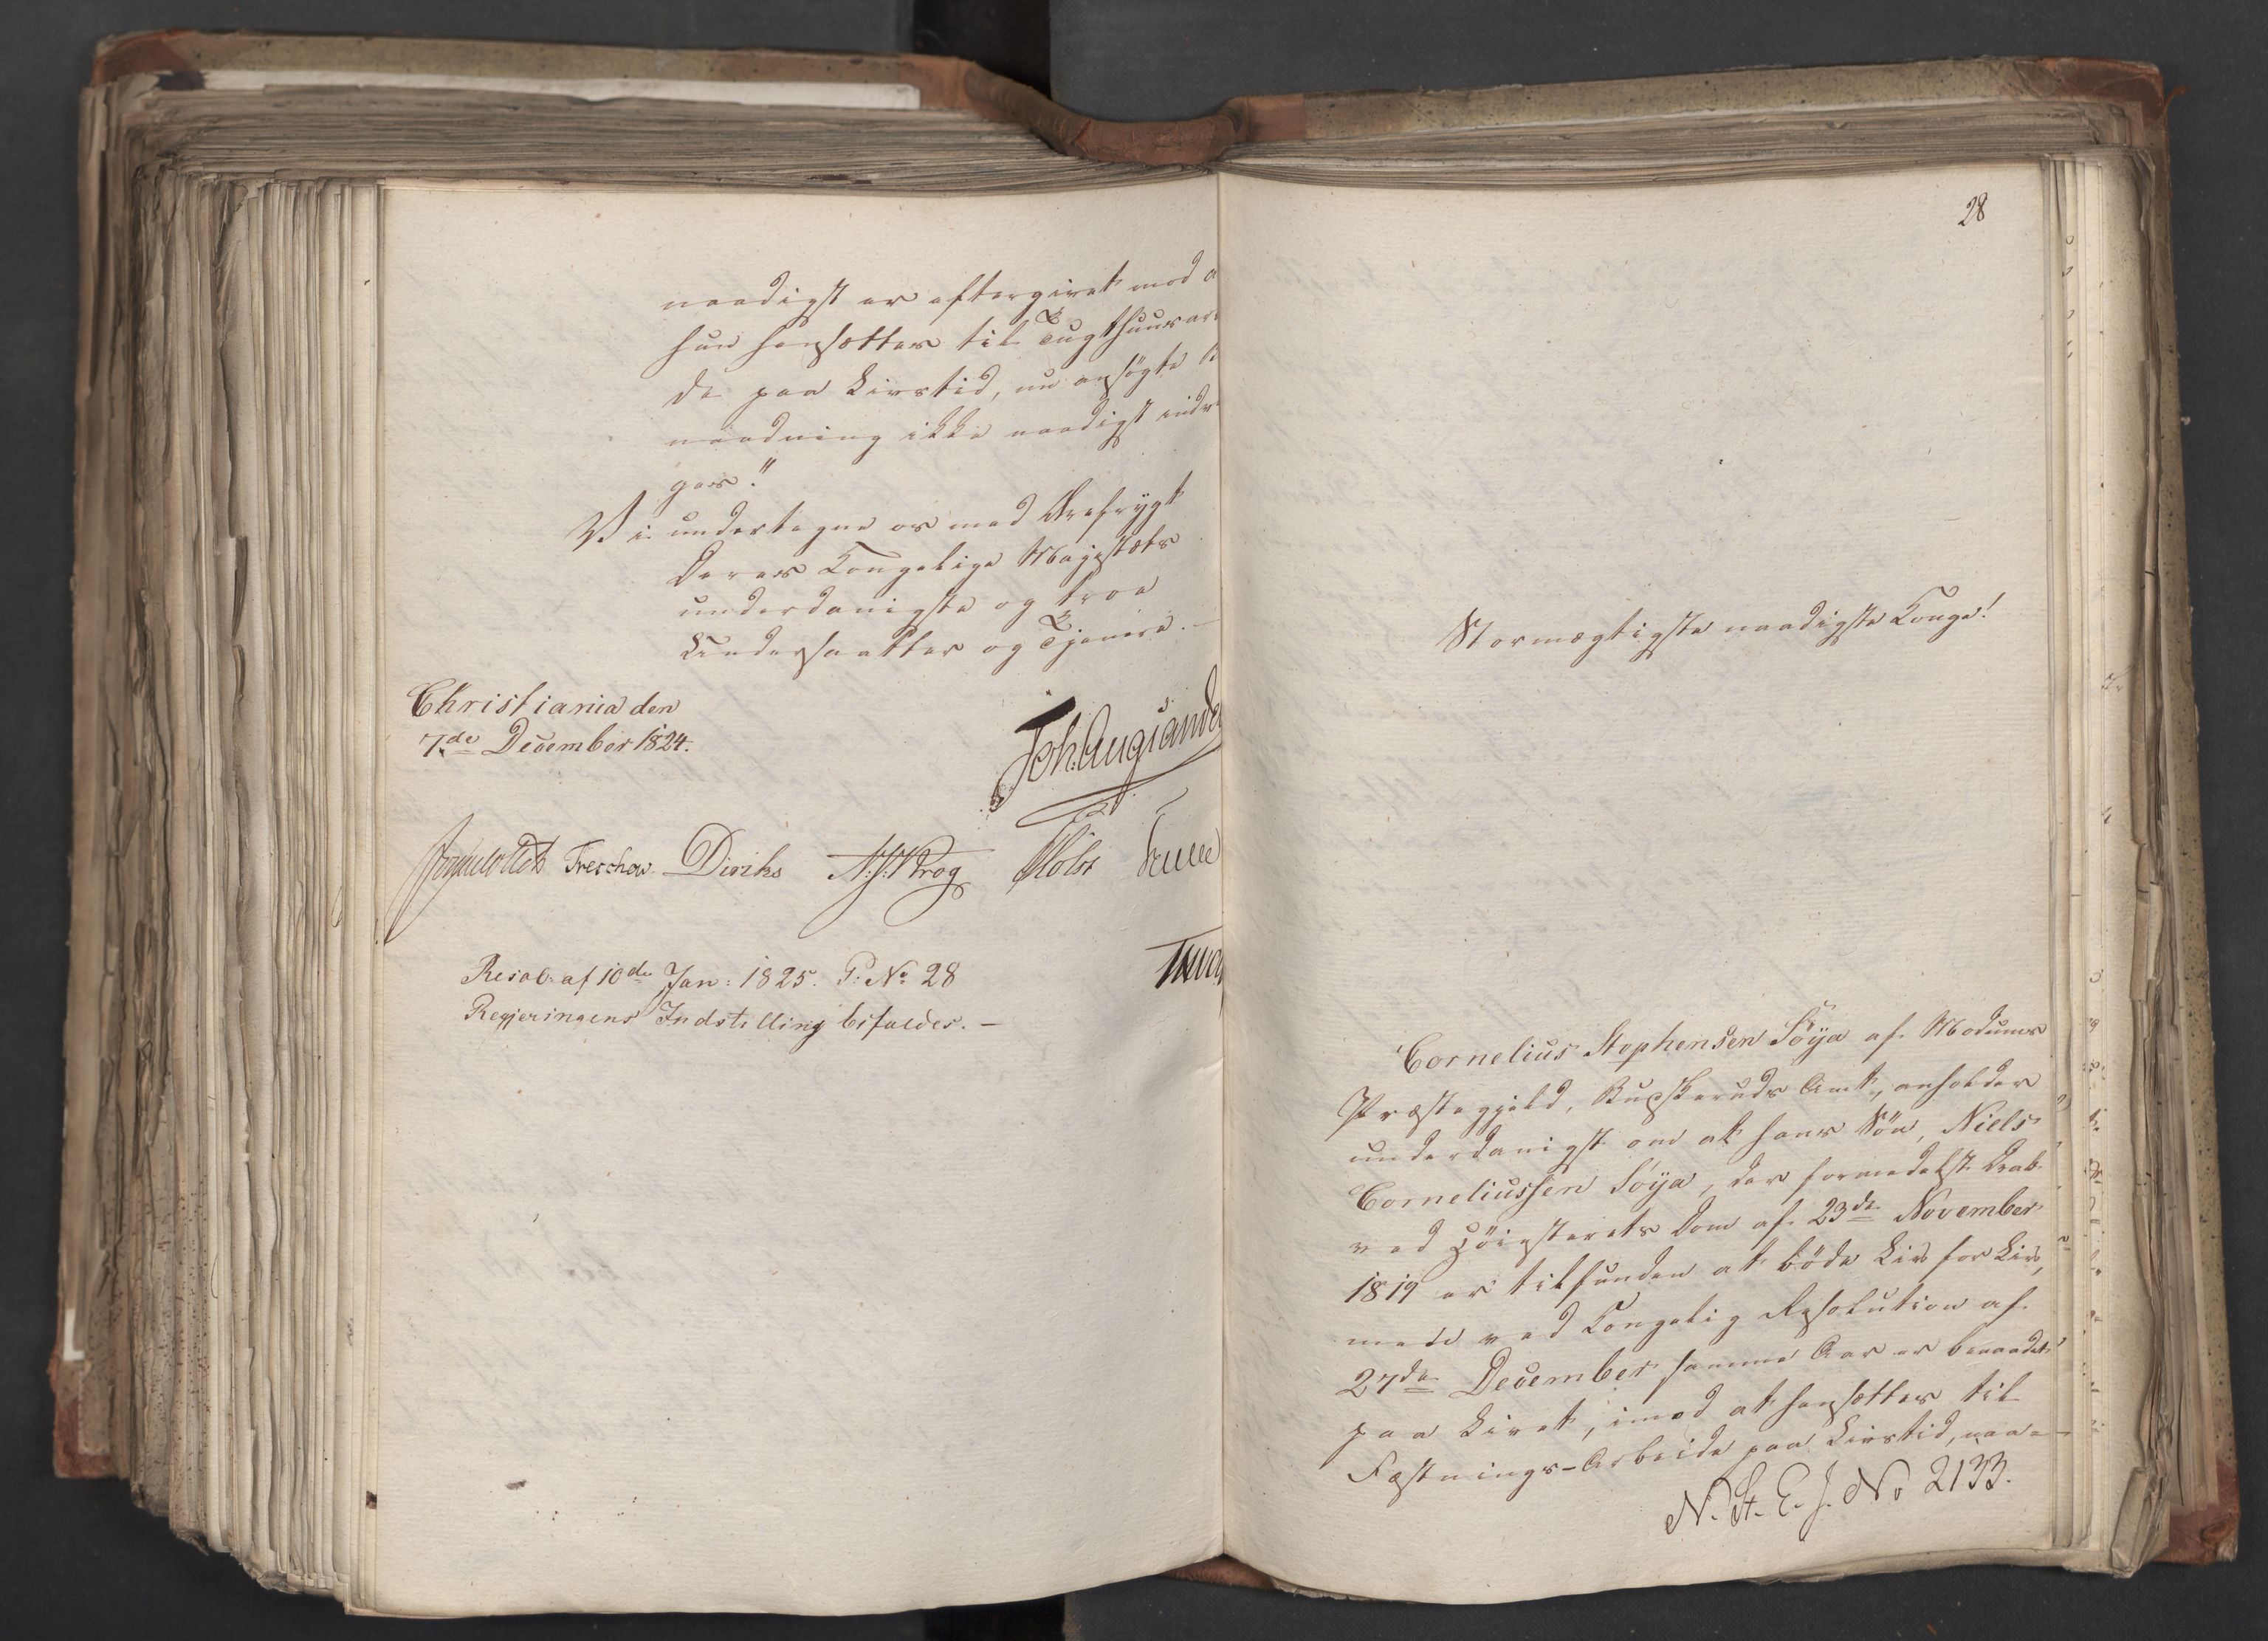 naadigst er eftergivet mod a
hun hensættes til Tugthuusar
de paa Livstid, nu ansøgte
naadning ikke naadigst indr
ges."
Vi undertegne os med Ærefrygt
Deres Kongelige Majestæts
underdanigste og troe
Undersaatter og Tjenere.
Christiania den
7de December 1824.
Joh. Aug: Sande
Treschow Diriks N. J. Krog Holst
Resol: af 10de Jan: 1825. P: No 28
Regjeringens Indstilling bifaldes. —
28
Stormægtigste naadigste Konge!
Cornelius Stephensen Søya af Modums
Præstegjeld, Buskeruds Amt, anholder
underdanigst om at hans Søn, Niels
Corneliussen Søya, der formedelst Drab
ved Høiesterets Dom af 23de November
1819 er tilfunden at bøde Liv for Liv,
men ved Kongelig Resolution af
27de December samme Aar er benaadet
paa Livet, imod at hensættes til
Fæstnings-Arbeide paa Livstid, naa-
N. St. E. J. No 2133.